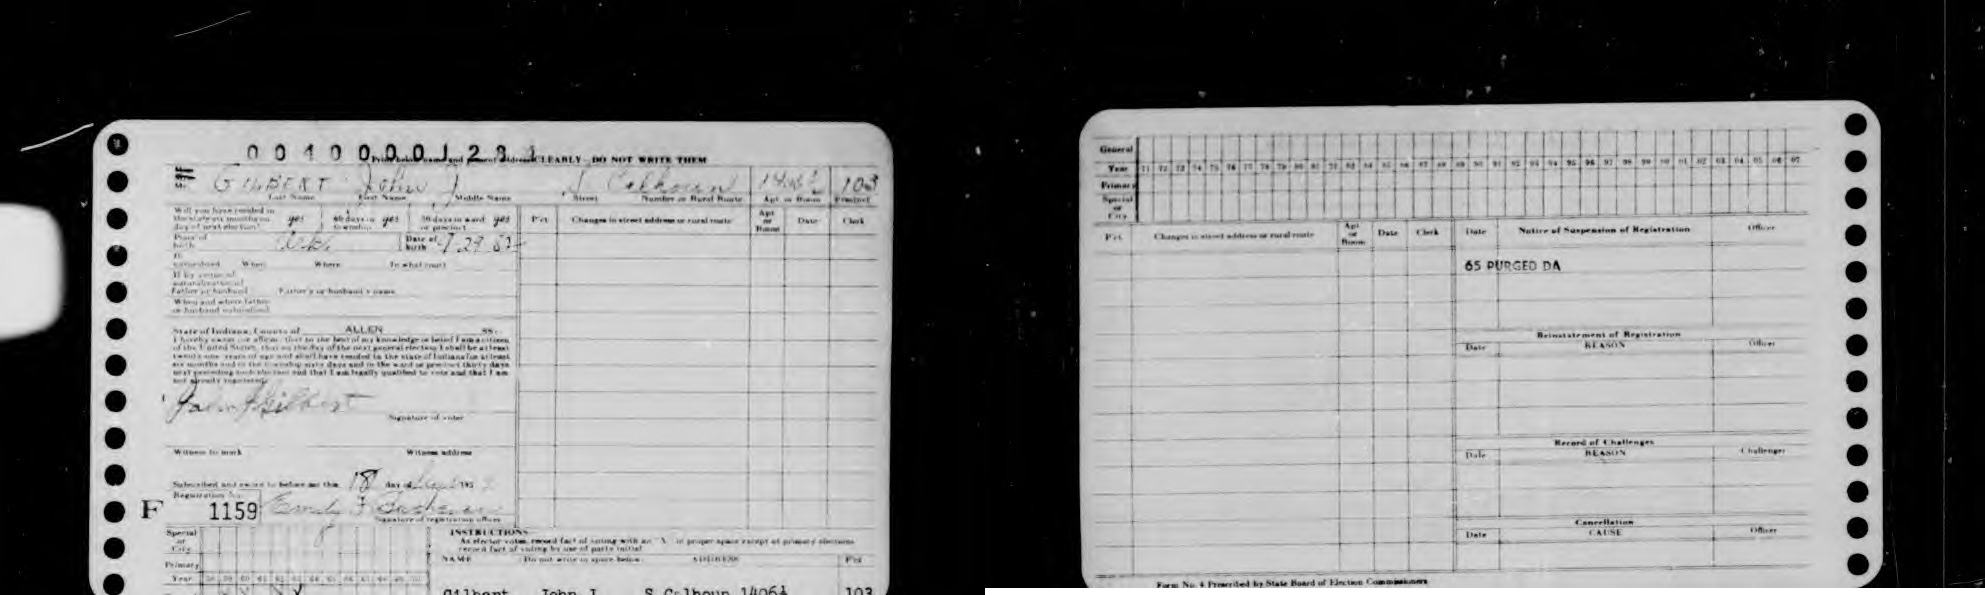 004000012
Print below name and CLEARLY - DO NOT WRITE THEM
GILBERT John J. S Calhoun 1406½ 103
Last Name First Name Middle Name Street Number or Rural Route Apt or Room Precinct
Will you have resided in the state six months on day of next election? yes 60 days in township yes 30 days in ward or precinct yes
Place of birth Ark. Date of birth
If naturalized When Where In what court
If by virtue of naturalization of Father or husband Father's or husband's name
When and where father or husband naturalized
Pct Changes in street address or rural route Apt or Room Date Clerk
State of Indiana, County of ALLEN SS:
I hereby swear (or affirm) that to the best of my knowledge or belief I am a citizen
of the United States, that on the day of the next general election I shall be at least
twenty-one years of age and shall have resided in the state of Indiana for at least
six months and in the township sixty days and in the ward or precinct thirty days
next preceding such election and that I am legally qualified to vote and that I am
not already registered.
John J Gilbert
Signature of voter
Witness to mark Witness address
Subscribed and sworn to before me this 18 day of 195
Registration No.
F 1159 Emily F
Signature of registration officer
Special or City
Primary
Year
INSTRUCTIONS
As elector votes, record fact of voting with an "X" in proper space except at primary elections
record fact of voting by use of party initial
NAME Do not write in space below ADDRESS Pct
Gilbert John J S Calhoun 1406½ 103
General
Year 71 72 73 74 75 76 77 78 79 80 81 82 83 84 85 86 87 88 89 90 91 92 93 94 95 96 97 98 99 00 01 02 03 04 05 06 07
Primary
Special or City
Pct Changes in street address or rural route Apt or Room Date Clerk
Date Notice of Suspension of Registration Officer
65 PURGED DA
Reinstatement of Registration
Date REASON Officer
Record of Challenges
Date REASON Challenger
Cancellation
Date CAUSE Officer
Form No. 4 Prescribed by State Board of Election Commissioners